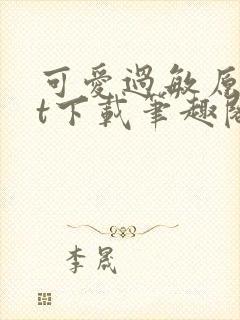 可愛過敏原
t下載筆趣閣
李晟